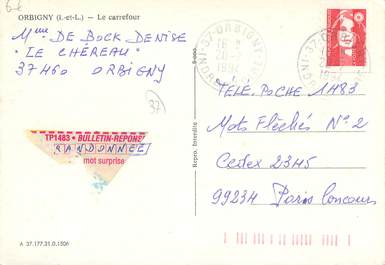 6€
ORBIGNY (I.-et-L.) — Le carrefour
Mme DE BOCK DENISE
"LE CHÉREAU"
37460 ORBIGNY
37
TP1483 • BULLETIN-REPONSE
RANDONNEE
mot surprise
A 37.177.31.0.1506
Repro. Interdite
37-ORBIGNY
1994
TÉLÉ. POCHE 1483
Mots Fléchés N°2
Cedex 2345
99234 Paris Concours